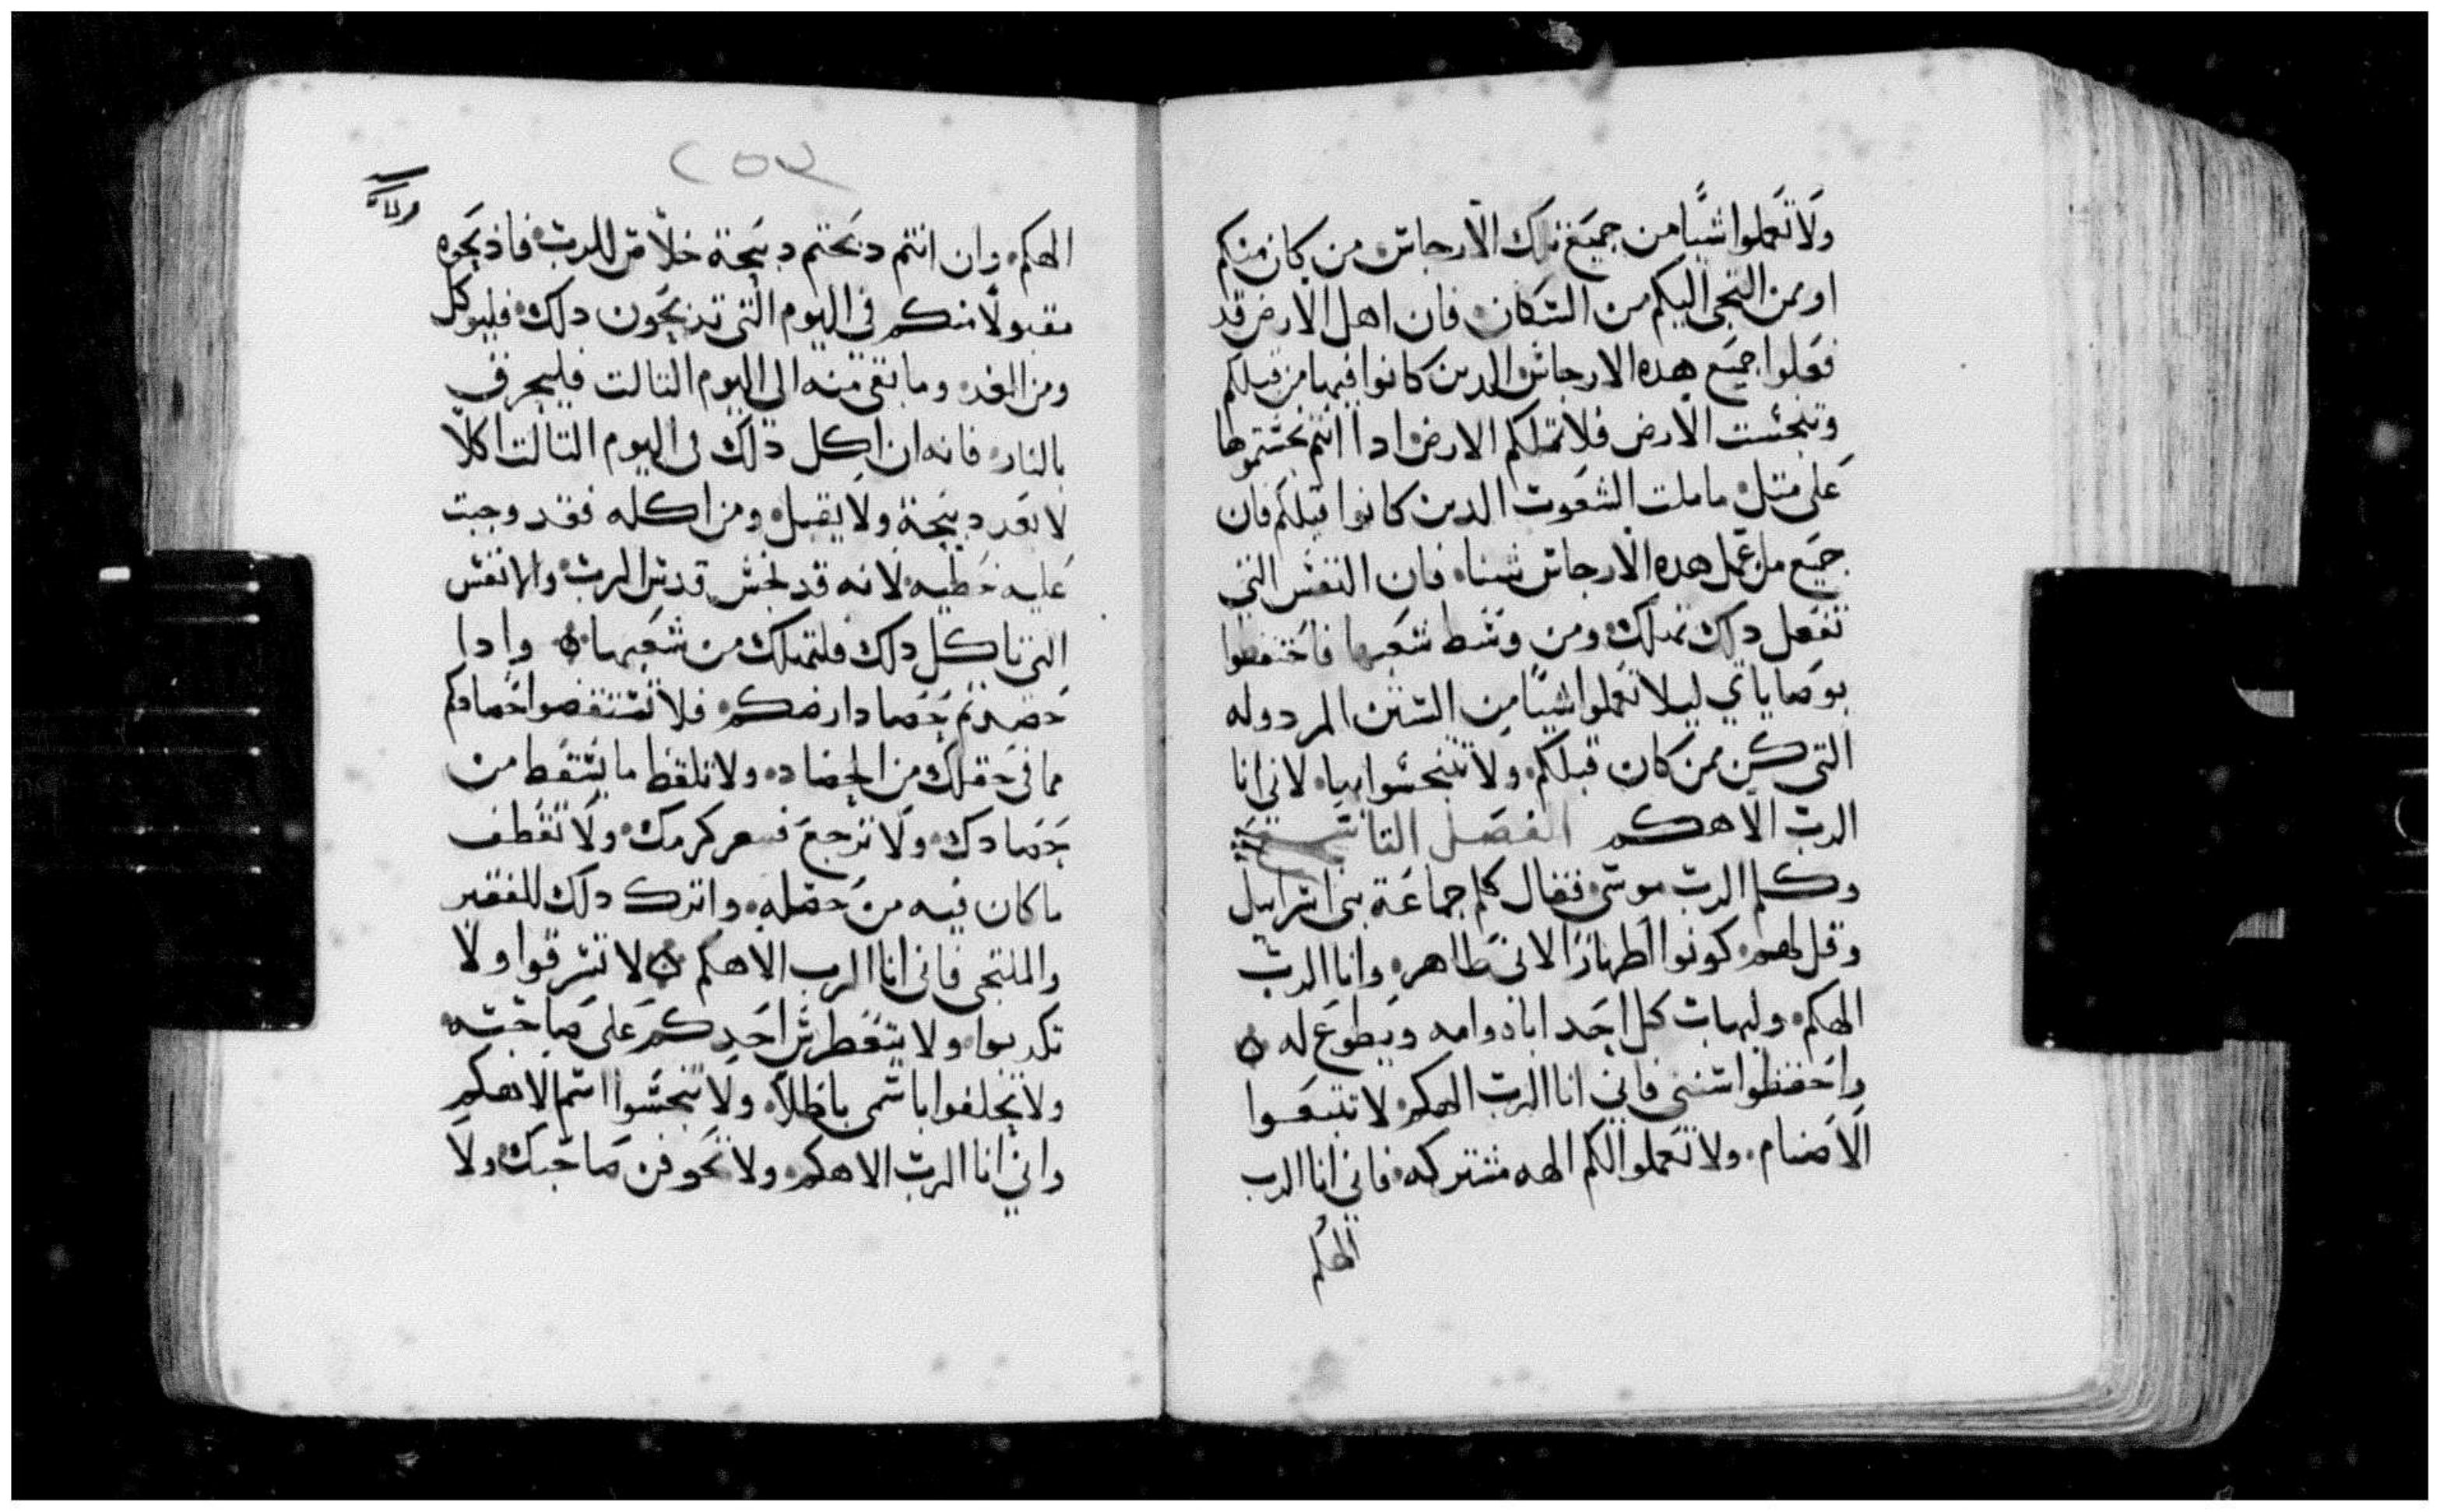 ولا تعملوا شيًا من جميع تلك الارجاس من كان منكم
او ممن التجى اليكم من السكان فان اهل الارض قد
فعلوا جميع هده الارجاس الدين كانوا فيها من قبلكم
وتنجست الارض فلا تملكم الارض ادا انتم نجستموها
على متل ما ملت الشعوب الدين كانوا قبلكم فان
جميع من عمل هده الارجاس شيئا فان النفس التي
تفعل دلك تهلك ومن وسط شعبها فاحتفظوا
بوصاياي ليلا تعملوا شيًا من السنن المردوله
التي كن ممن كان قبلكم ولا تتنجسوا بها لاني انا
الرب الاهكم الفصل التاسع
وكلم الرب موسى فقال كلم جماعة بني اسرايل
وقل لهم كونوا اطهارًا لاني طاهر وانا الرب
الهكم وليهاب كل احد اباه وامه ويطوع له
واحفظوا سنني فاني انا الرب الهكم لا تتبعوا
الاصنام ولا تعملوا لكم الهه مشتركه فاني انا الرب
الهكم
٢٥٣
الهكم وان انتم دبحتم دبيحة خلاص للرب فادبحوه
مقبولا منكم في اليوم التي تدبحون دلك فليوكل
ومن الغد وما بقى منه الى اليوم التالت فليحرق
بالنار فانه ان اكل دلك في اليوم التالت اكلًا
لا تعد دبيحة ولا يقبل ومن اكله فقد وجبت
عليه خطيه لانه قد نجس قدس الرب والانفس
التي تاكل دلك فلتهلك من شعبها وادا
حصدتم حصاد ارضكم فلا تستنقصوا حصادكم
مما في حقلك من الحصاد ولا تلقط ما يسقط من
حصادك ولا ترجع كرمك ولا تقطف
ما كان فيه من واترك دلك للفقير
والملتجى فاني انا الرب الاهكم لا تسرقوا ولا
تكدبوا ولا يتغطرس احدكم على صاحبه
ولا تحلفوا باسمى باطلًا ولا تنجسوا اسم الاهكم
واني انا الرب الاهكم ولا صاحبك ولا